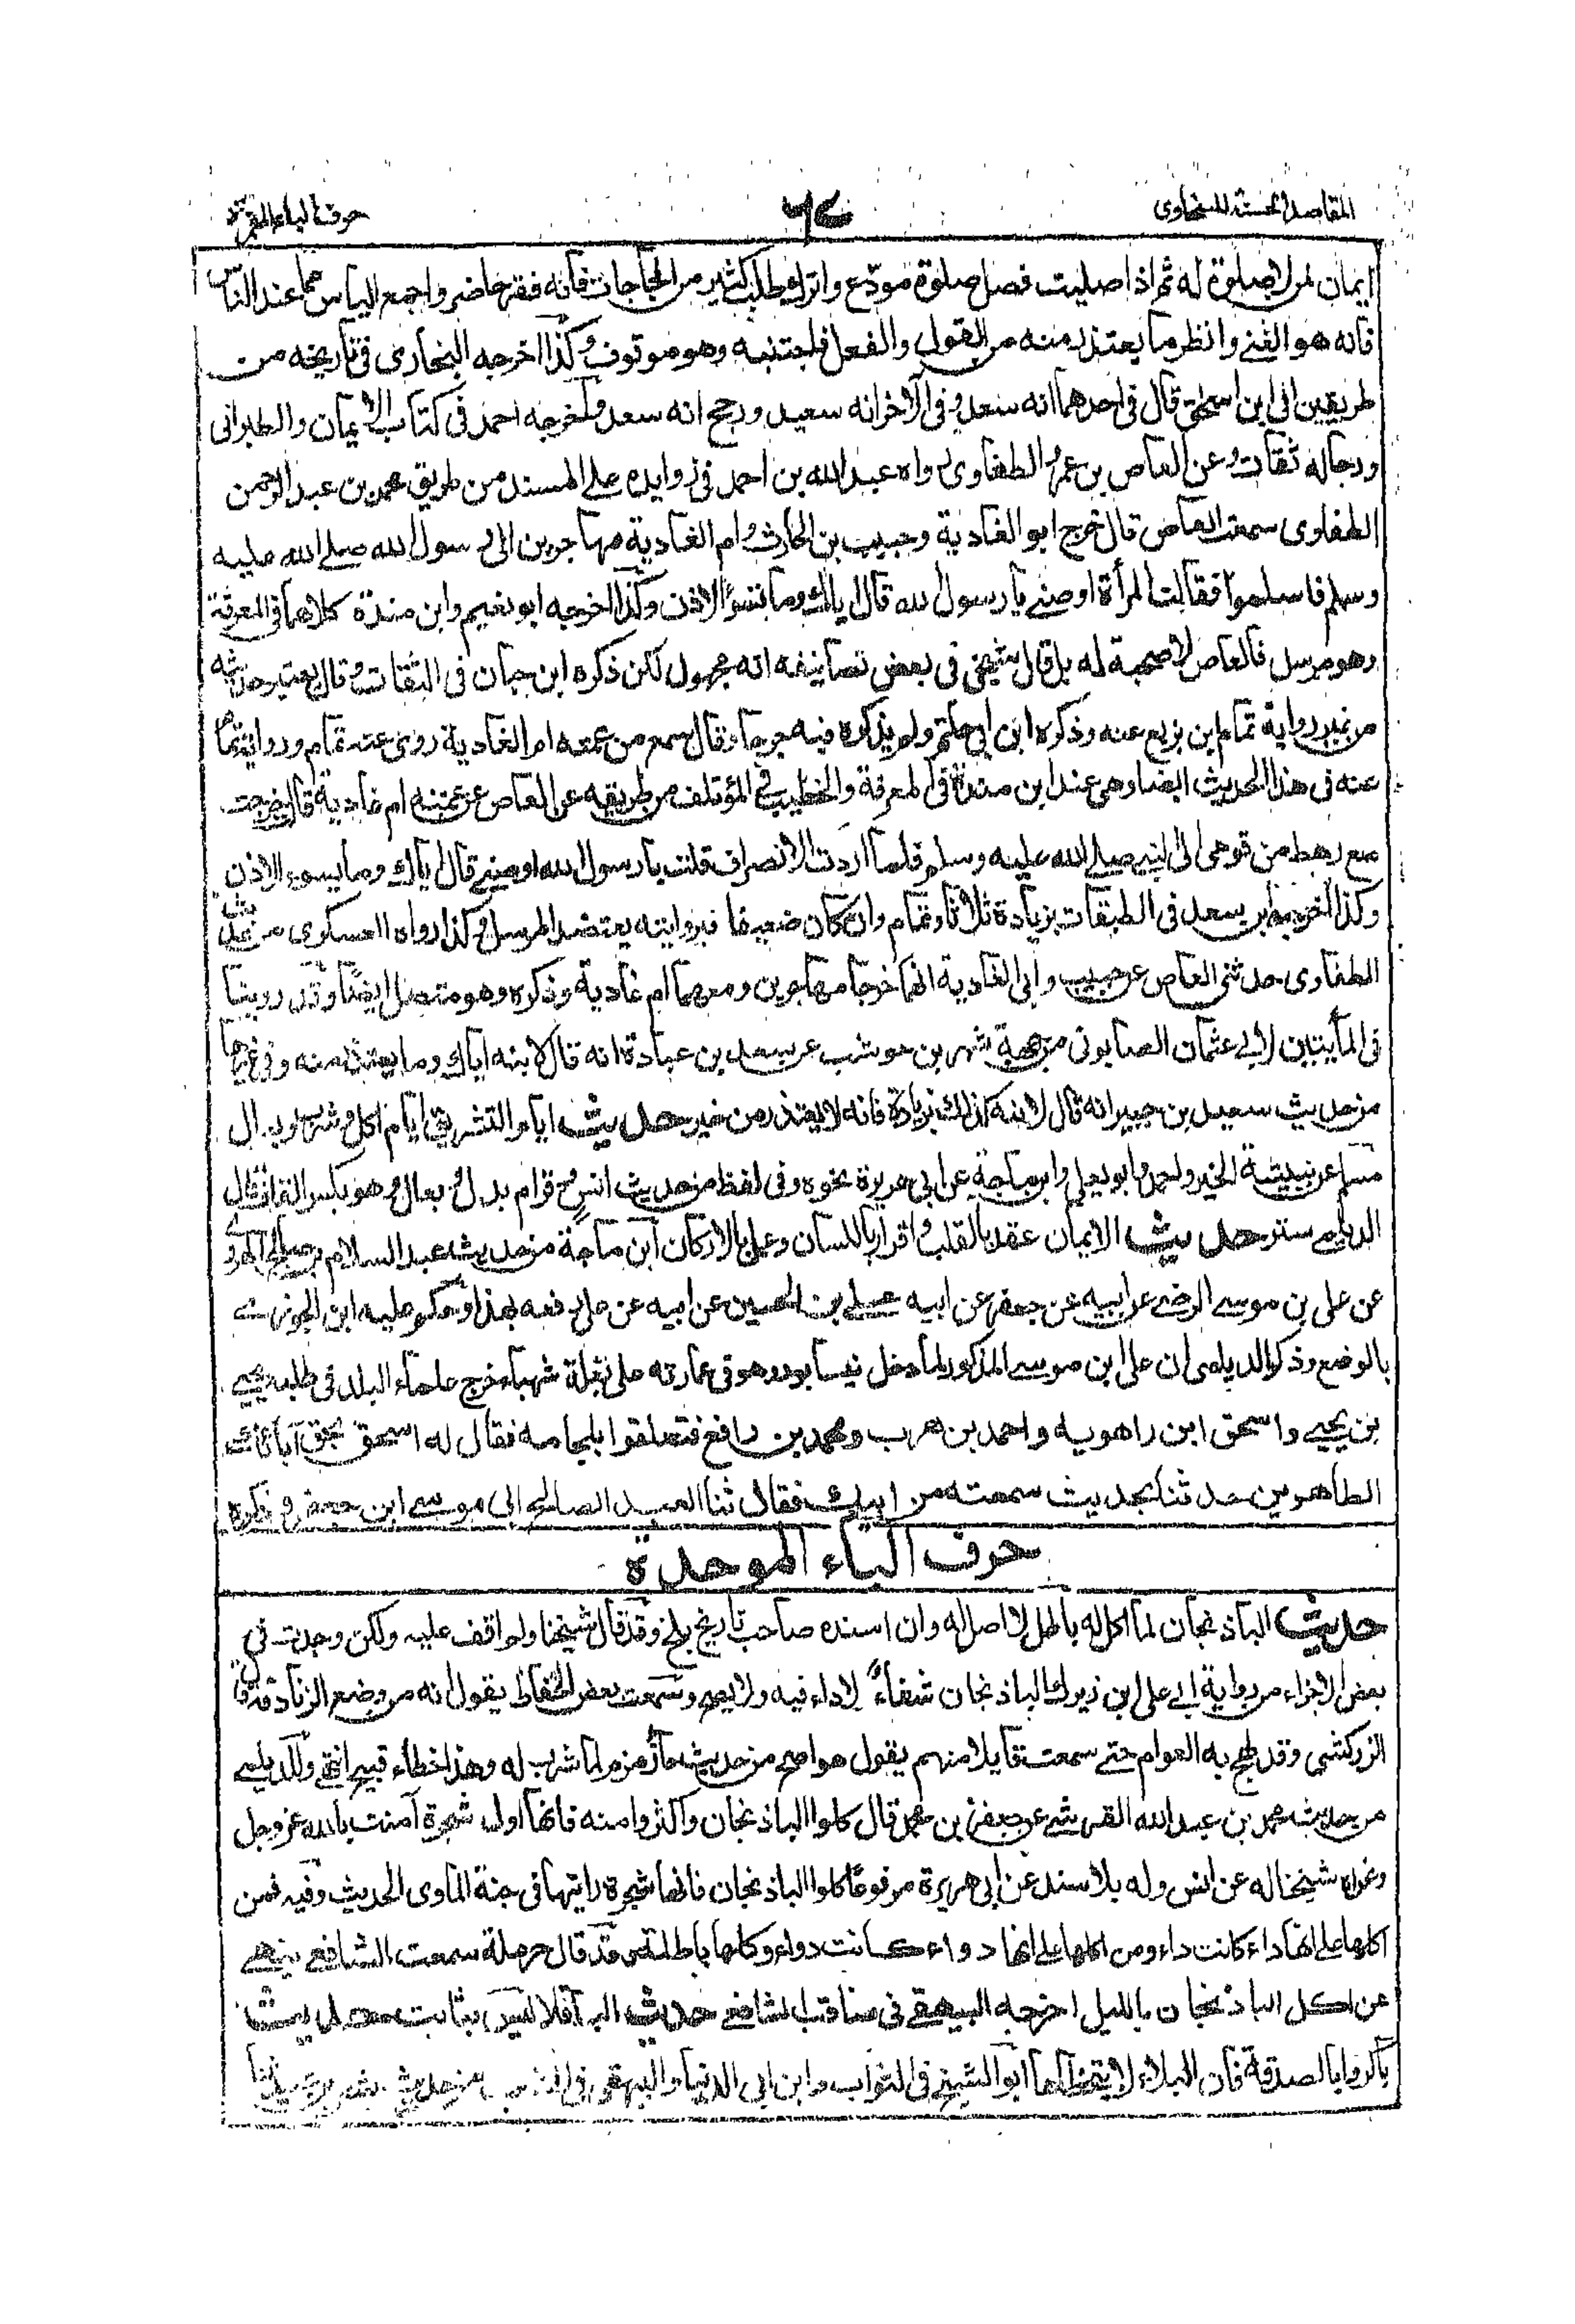 المقاصد الحسنة للسخاوى
٦٨
حرف الباء الموحدة
ايمان لمن لا صلوة له ثم اذا صليت فصل صلوة مودّع واترك طلب كثير من الحاجات فانه فقر حاضر واجمع الياس مما عند الناس
فانه هو الغنى وانظر ما يعتذر منه من القول والفعل فاجتنبه وهو موقوف وكذا اخرجه البخارى فى تاريخه من
طريقين الى ابن اسحق قال فى احدهما انه سعد وفى الآخر انه سعيد ورجح انه سعد واخرجه احمد فى كتاب الايمان والطبرانى
ورجاله ثقات وعن العاص بن عمرو الطفاوى رواه عبد الله بن احمد فى زوايده على المسند من طريق محمد بن عبد الرحمن
الطفاوى سمعت العاص قال خرج ابو الغادية وحبيب بن الحارث وام الغادية مهاجرين الى رسول الله صلى الله عليه
وسلم فاسلموا فقالت المرأة اوصنى يا رسول الله قال اياك وما يسوء الاذن وكذا اخرجه ابو نعيم وابن مندة كلاهما فى المعرفة
وهو مرسل فالعاص لا صحبة له بل قال شيخى فى بعض تصانيفه انه مجهول لكن ذكره ابن حبان فى الثقات وقال يعتبر حديثه
من غير رواية تمام ابن بزيع عنه وذكره ابن ابى حاتم ولم يذكره فيه جرحا وقال سمع من عمته ام الغادية روى عنه تمام ورواية تمام
عنه فى هذا الحديث ايضا وهى عند ابن مندة فى المعرفة والخطيب فى المؤتلف من طريقه عن العاص عن عمته ام غادية قال خرجت
مع رهط من قومى الى النبى صلى الله عليه وسلم فلما اردت الانصراف قلت يا رسول الله اوصنى قال اياك وما يسوء الاذن
وكذا اخرجه ابن سعد فى الطبقات بزيادة ثلاثا وتمام وان كان ضعيفا فبروايته يعتضد المرسل وكذا رواه العسكرى من حديث
الطفاوى حدثنى العاص عن حبيب وابى الغادية انهما خرجا مهاجرين ومعهما ام غادية وذكره وهو متصل ايضا وقد روينا
فى المأيتين لابى عثمان الصابونى من جهة شهر بن حوشب عن سعد بن عبادة انه قال لابنه اياك وما يعتذر منه وفى غيرها
من حديث سعيد بن جبير انه قال لابنه كذلك بزيادة فانه لا يعتذر من خير حديث ايام التشريق ايام اكل وشرب وبعال
مسلم عن نبيشة الخير ولاحمد وابو يعلى وابن ماجة عن ابى هريرة نحوه وفى لفظ من حديث انس قرام بدل بعال وهو بكسر القاف قال
الديلمى ستر حديث الايمان عقد بالقلب واقرار باللسان وعمل بالاركان ابن ماجة من حديث عبد السلام بن صالح الهروى
عن على بن موسى الرضى عن ابيه عن جعفر عن ابيه على بن الحسين عن ابيه عن على رفعه بهذا وحكم عليه ابن الجوزى
بالوضع وذكر الديلمى ان على ابن موسى المذكور لما دخل نيسابور وهو فى عمارته على بغلة شهباء خرج علماء البلد فى طلبه يحيى
بن يحيى واسحق ابن راهويه واحمد بن حرب ومحمد بن رافع فتعلقوا بلجامه فقال له اسحق بحق آبائك
الطاهرين حدثنا بحديث سمعته من ابيك فقال ثنا العبد الصالح ابى موسى ابن جعفر وذكره
حرف الباء الموحدة
حديث الباذنجان لما اكل له باطل لا اصل له وان اسنده صاحب تاريخ بلخ وقد قال شيخنا ولم اقف عليه ولكن وجدت فى
بعض الاجزاء من رواية ابى على ابن زيرك الباذنجان شفاءٌ لا داء فيه ولا يصح وسمعت بعض الحفاظ يقول انه من وضع الزنادقة وقال
الزركشى وقد لهج به العوام حتى سمعت قايلا منهم يقول هو اصح من حديث ماء زمزم لما شرب له وهذا خطأء قبيح انتهى وللديلمى
من حديث محمد بن عبد الله القرشى عن جعفر بن محمد قال كلوا الباذنجان واكثروا منه فانها اول شجرة آمنت بالله عز وجل
وعزاه شيخنا له عن انس وله بلا سند عن ابى هريرة مرفوعا كلوا الباذنجان فانها شجرة رايتها فى جنة الماوى الحديث وفيه فمن
اكلها على انها داء كانت داء ومن اكلها على انها دواء كانت دواء وكلها باطلة وقد قال حرملة سمعت الشافعى ينهى
عن اكل الباذنجان بالليل اخرجه البيهقى فى مناقب الشافعى حديث الباقلا ليس بثابت حديث
باكروا بالصدقة فان البلاء لا يتخطاها ابو الشيخ فى الثواب وابن ابى الدنيا والبيهقى فى من حديث بشر بن